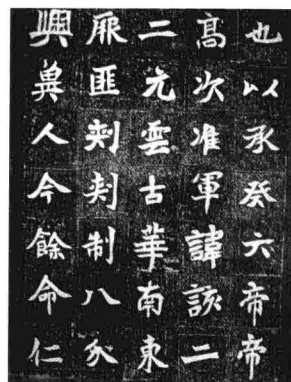 也以承癸六帝帝
高次准軍諱該二
二元雲古華南東
匪刾刾制八
興人今餘命仁